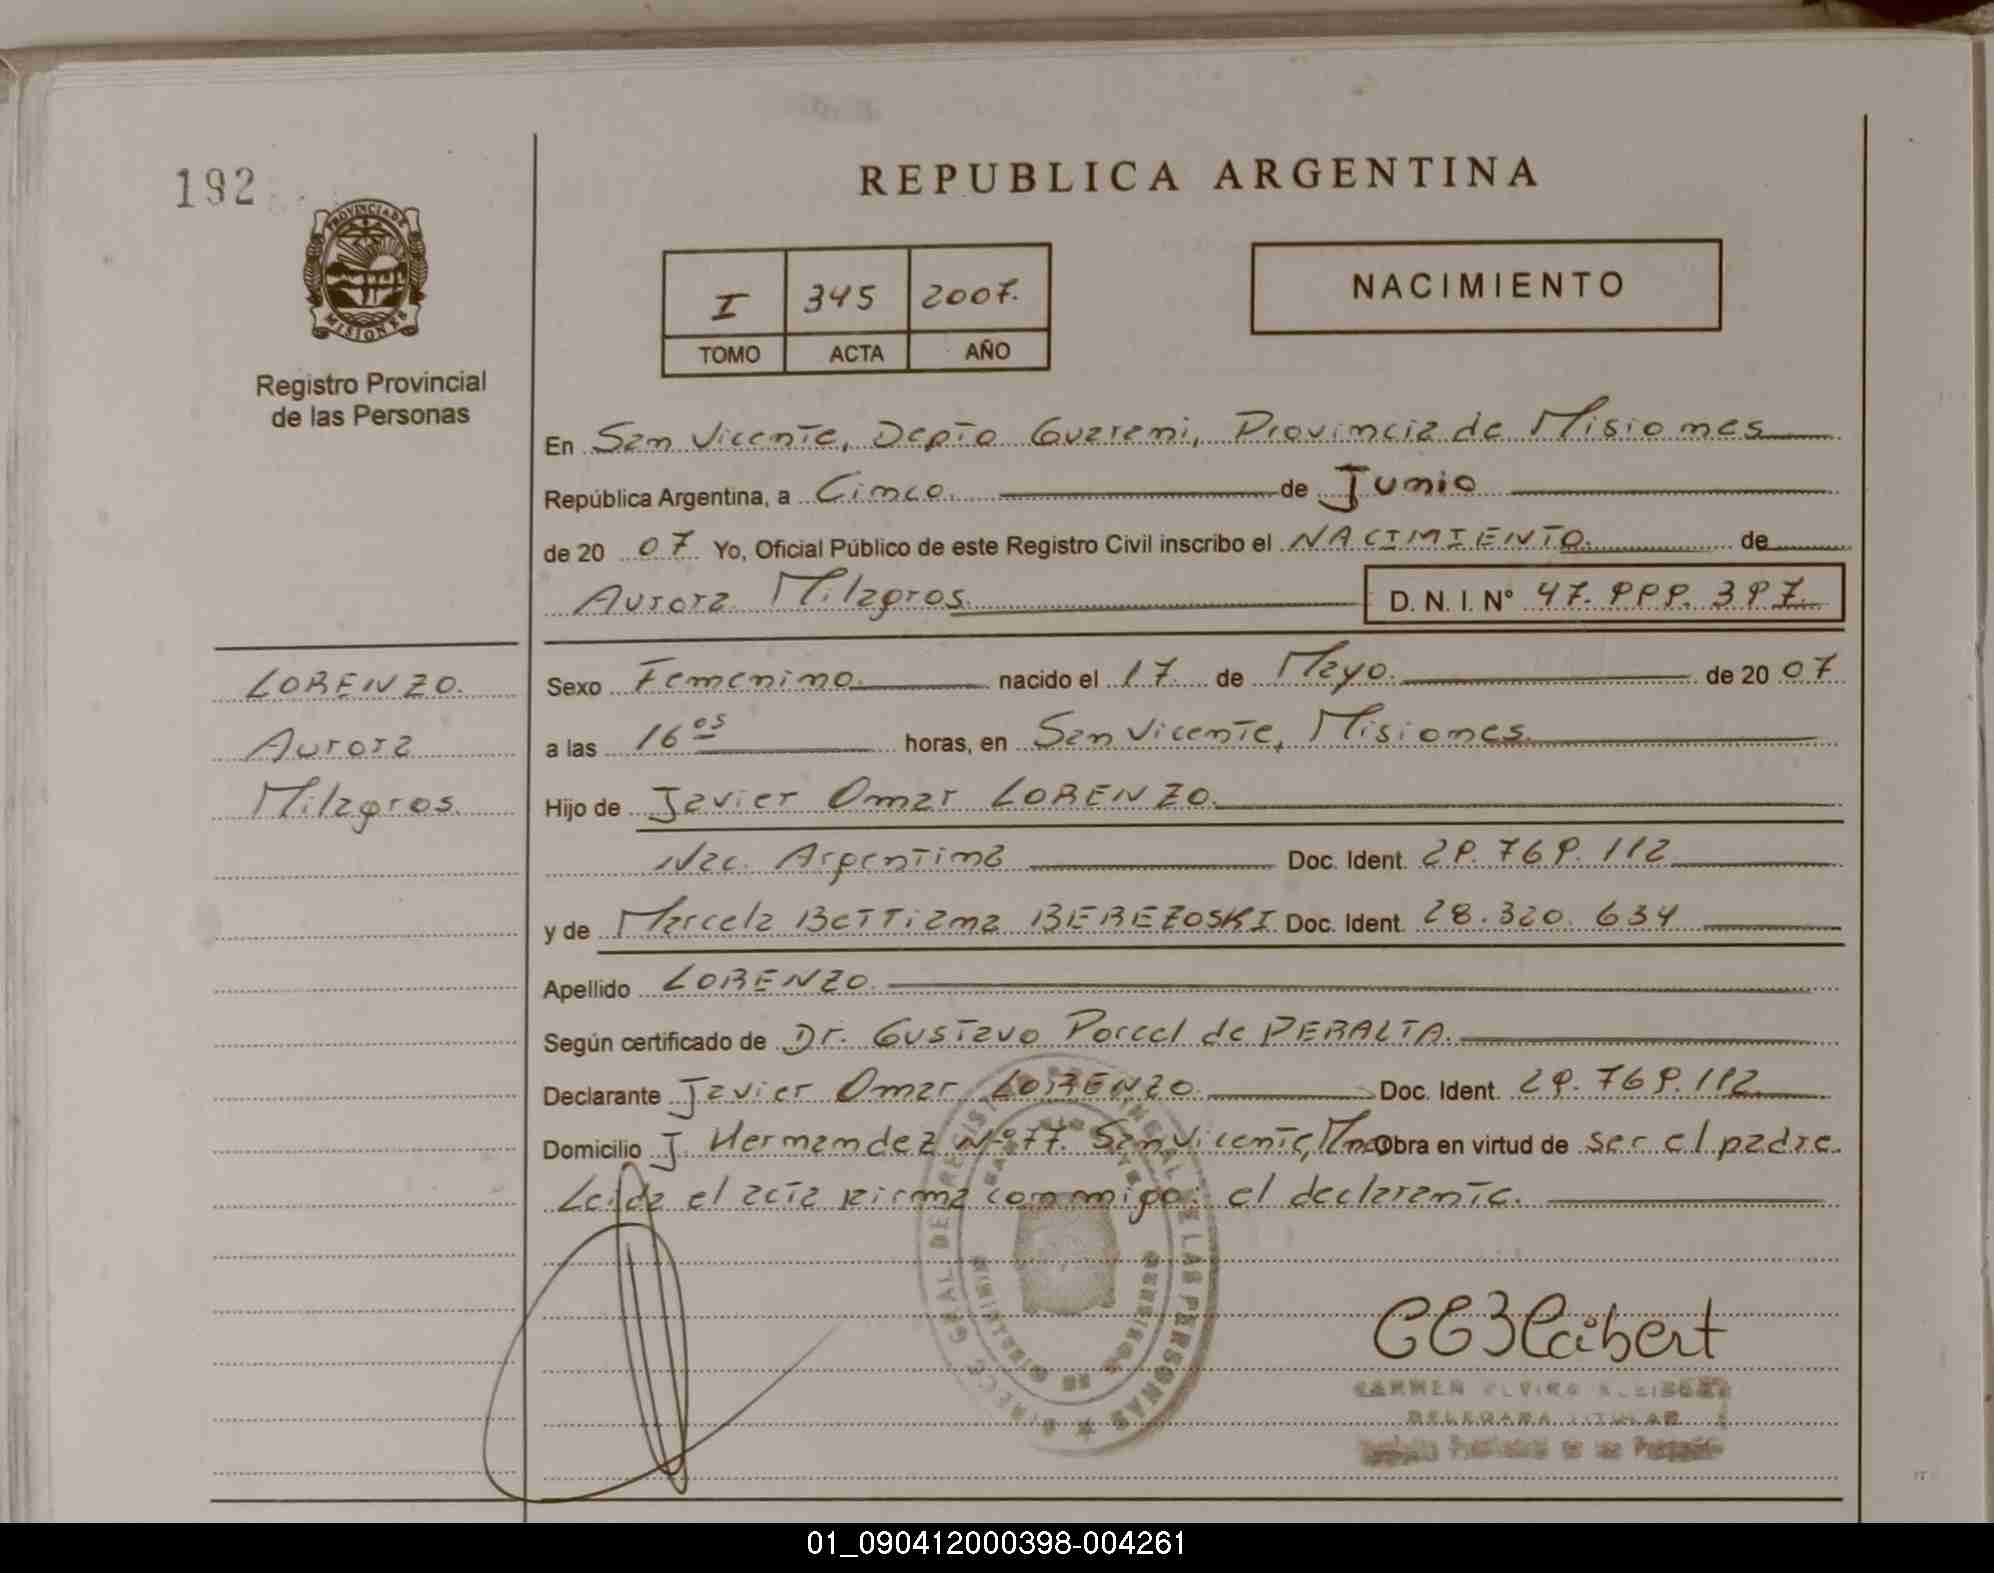 192
PROVINCIA DE
MISIONES
Registro Provincial
de las Personas
REPUBLICA ARGENTINA
I 345 2007.
TOMO ACTA AÑO
NACIMIENTO
En San Vicente, Depto Guarani, Provincia de Misiones
República Argentina, a Cinco. de Junio
de 20 07 Yo, Oficial Público de este Registro Civil inscribo el NACIMIENTO. de
Aurora Milagros. D. N. I. N° 47.999.397.
LORENZO.
Aurora
Milagros.
Sexo Femenino. nacido el 17 de Mayo. de 20 07
a las 16 05 horas, en San Vicente, Misiones.
Hijo de Javier Omar LORENZO.
Nac. Argentina Doc. Ident. 29.769.112
y de Marcela Bettiana BEREZOSKI Doc. Ident. 28.320.634
Apellido LORENZO.
Según certificado de Dr. Gustavo Porcel de PERALTA.
Declarante Javier Omar LORENZO. Doc. Ident. 29.769.112
Domicilio J. Hernandez N° 77. San Vicente, Mnes Obra en virtud de ser el padre.
Leida el acta firma conmigo: el declarante.
DIRECC. GRAL DE REGISTRO PROVINCIAL DE LAS PERSONAS
DELEGADA TITULAR
01_090412000398-004261